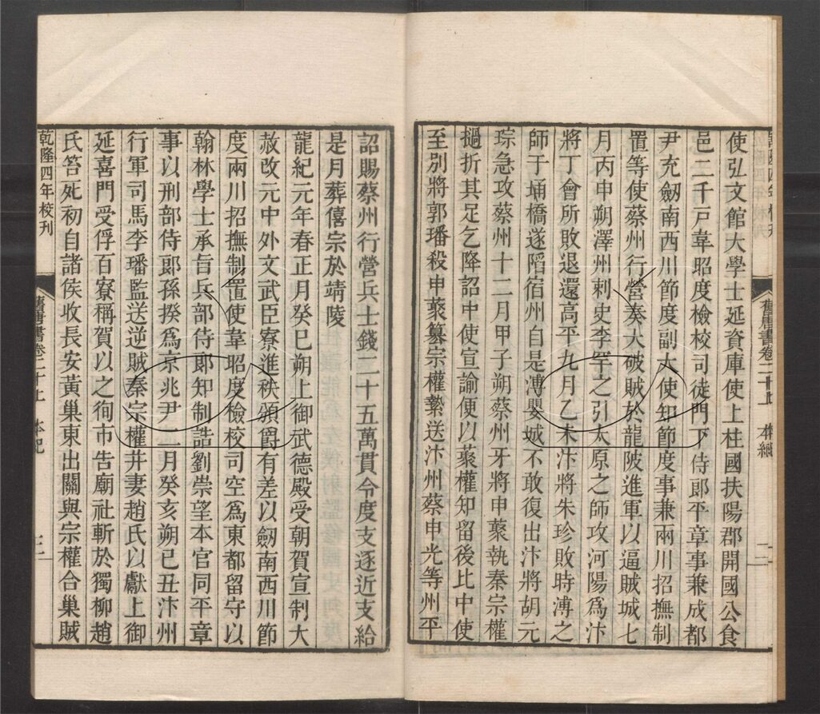 使弘文館大學士延資庫使上柱國扶陽郡開國公食
邑二千戸韋昭度檢校司徒門下侍郎平章事兼成都
尹充劒南西川節度副大使知節度事兼兩川招撫制
置等使蔡州行營奏大破賊於龍陂進軍以逼賊城七
月丙申朔澤州刺史李罕之引太原之師攻河陽爲汴
將丁會所敗退還高平九月乙未汴將朱珍敗時溥之
師于埇橋遂陷宿州自是溥嬰城不敢復出汴將胡元
琮急攻蔡州十二月甲子朔蔡州牙將申藂執秦宗權
撾折其足乞降詔中使宣諭便以藂權知留後比中使
至别將郭璠殺申藂篡宗權縶送汴州蔡申光等州平
舊唐書卷二十上 本紀 二
詔賜蔡州行營兵士錢二十五萬貫令度支逐近支給
是月葬僖宗於靖陵
龍紀元年春正月癸巳朔上御武德殿受朝賀宣制大
赦改元中外文武臣寮進秩頒爵有差以劒南西川節
度兩川招撫制置使韋昭度檢校司空爲東都留守以
翰林學士承旨兵部侍郎知制誥劉崇望本官同平章
事以刑部侍郎孫揆爲京兆尹二月癸亥朔己丑汴州
行軍司馬李璠監送逆賊秦宗權并妻趙氏以獻上御
延喜門受俘百寮稱賀以之徇市告廟社斬於獨柳趙
氏笞死初自諸侯收長安黃巢東出關與宗權合巢賊
乾隆四年校刋
舊唐書卷二十上 本紀 三